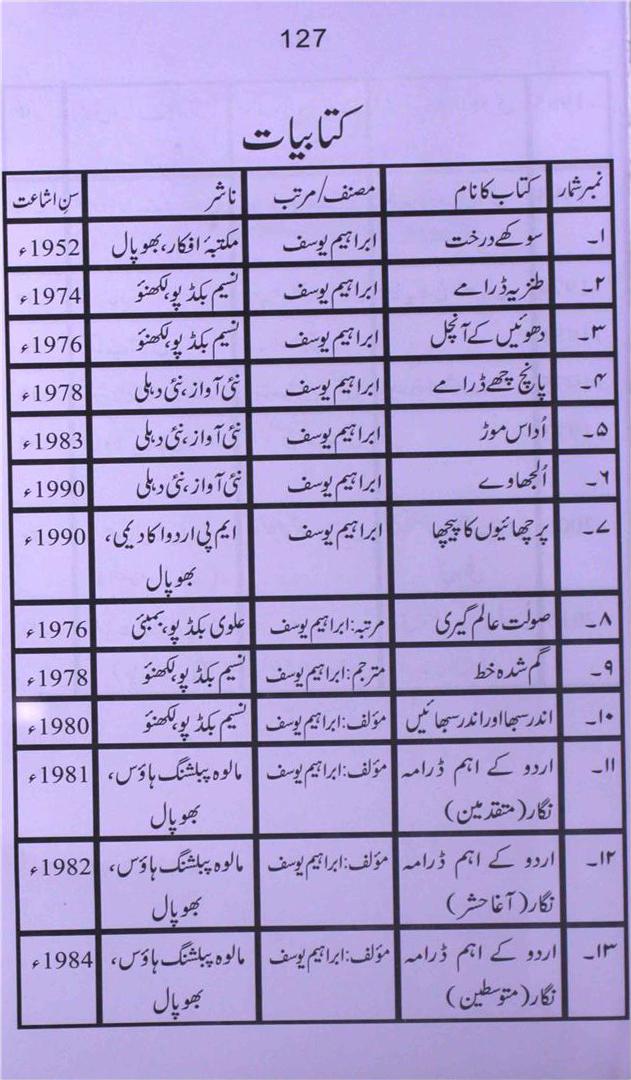 127
کتابیات
نمبر شمار کتاب کا نام مصنف/مرتب ناشر سنِ اشاعت
۱۔ سوکھے درخت ابراہیم یوسف مکتبۂ افکار، بھوپال 1952ء
۲۔ طنزیہ ڈرامے ابراہیم یوسف نسیم بکڈپو، لکھنؤ 1974ء
۳۔ دھوئیں کے آنچل ابراہیم یوسف نسیم بکڈپو، لکھنؤ 1976ء
۴۔ پانچ چھے ڈرامے ابراہیم یوسف نئی آواز، نئی دہلی 1978ء
۵۔ اُداس موڑ ابراہیم یوسف نئی آواز، نئی دہلی 1983ء
۶۔ اُلجھاوے ابراہیم یوسف نئی آواز، نئی دہلی 1990ء
۷۔ پرچھائیوں کا پیچھا ابراہیم یوسف ایم پی اردو اکادیمی، 1990ء
بھوپال
۸۔ صولت عالم گیری مرتبہ: ابراہیم یوسف علوی بکڈپو، بمبئی 1976ء
۹۔ گم شدہ خط مترجم: ابراہیم یوسف نسیم بکڈپو، لکھنؤ 1978ء
۱۰۔ اندر سبھا اور اندر سبھائیں مؤلف: ابراہیم یوسف نسیم بکڈپو، لکھنؤ 1980ء
۱۱۔ اردو کے اہم ڈرامہ مؤلف: ابراہیم یوسف مالوہ پبلشنگ ہاؤس، 1981ء
نگار (متقدمین) بھوپال
۱۲۔ اردو کے اہم ڈرامہ مؤلف: ابراہیم یوسف مالوہ پبلشنگ ہاؤس، 1982ء
نگار (آغا حشر) بھوپال
۱۳۔ اردو کے اہم ڈرامہ مؤلف: ابراہیم یوسف مالوہ پبلشنگ ہاؤس، 1984ء
نگار (متوسطین) بھوپال